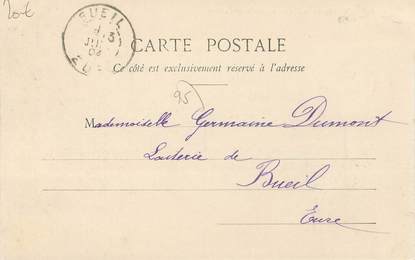 20€
BUEIL
3
EURE
CARTE POSTALE
Ce côté est exclusivement réservé à l'adresse
95
Mademoiselle Germaine Dumont
Laiterie de
Bueil
Eure